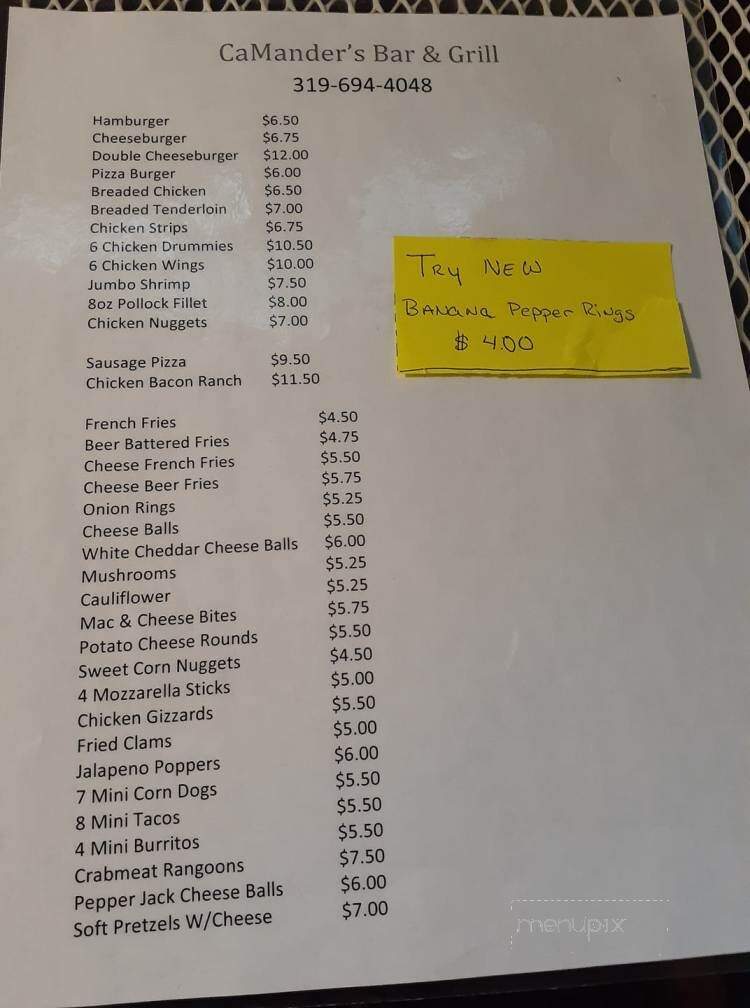 CaMander's Bar & Grill
319-694-4048
Hamburger $6.50
Cheeseburger $6.75
Double Cheeseburger $12.00
Pizza Burger $6.00
Breaded Chicken $6.50
Breaded Tenderloin $7.00
Chicken Strips $6.75
6 Chicken Drummies $10.50
6 Chicken Wings $10.00
Jumbo Shrimp $7.50
8oz Pollock Fillet $8.00
Chicken Nuggets $7.00
Sausage Pizza $9.50
Chicken Bacon Ranch $11.50
French Fries $4.50
Beer Battered Fries $4.75
Cheese French Fries $5.50
Cheese Beer Fries $5.75
Onion Rings $5.25
Cheese Balls $5.50
White Cheddar Cheese Balls $6.00
Mushrooms $5.25
Cauliflower $5.25
Mac & Cheese Bites $5.75
Potato Cheese Rounds $5.50
Sweet Corn Nuggets $4.50
4 Mozzarella Sticks $5.00
Chicken Gizzards $5.50
Fried Clams $5.00
Jalapeno Poppers $6.00
7 Mini Corn Dogs $5.50
8 Mini Tacos $5.50
4 Mini Burritos $5.50
Crabmeat Rangoons $7.50
Pepper Jack Cheese Balls $6.00
Soft Pretzels W/Cheese $7.00
TRy NEW
BANaNa Pepper Rings
$ 4.00
menupix